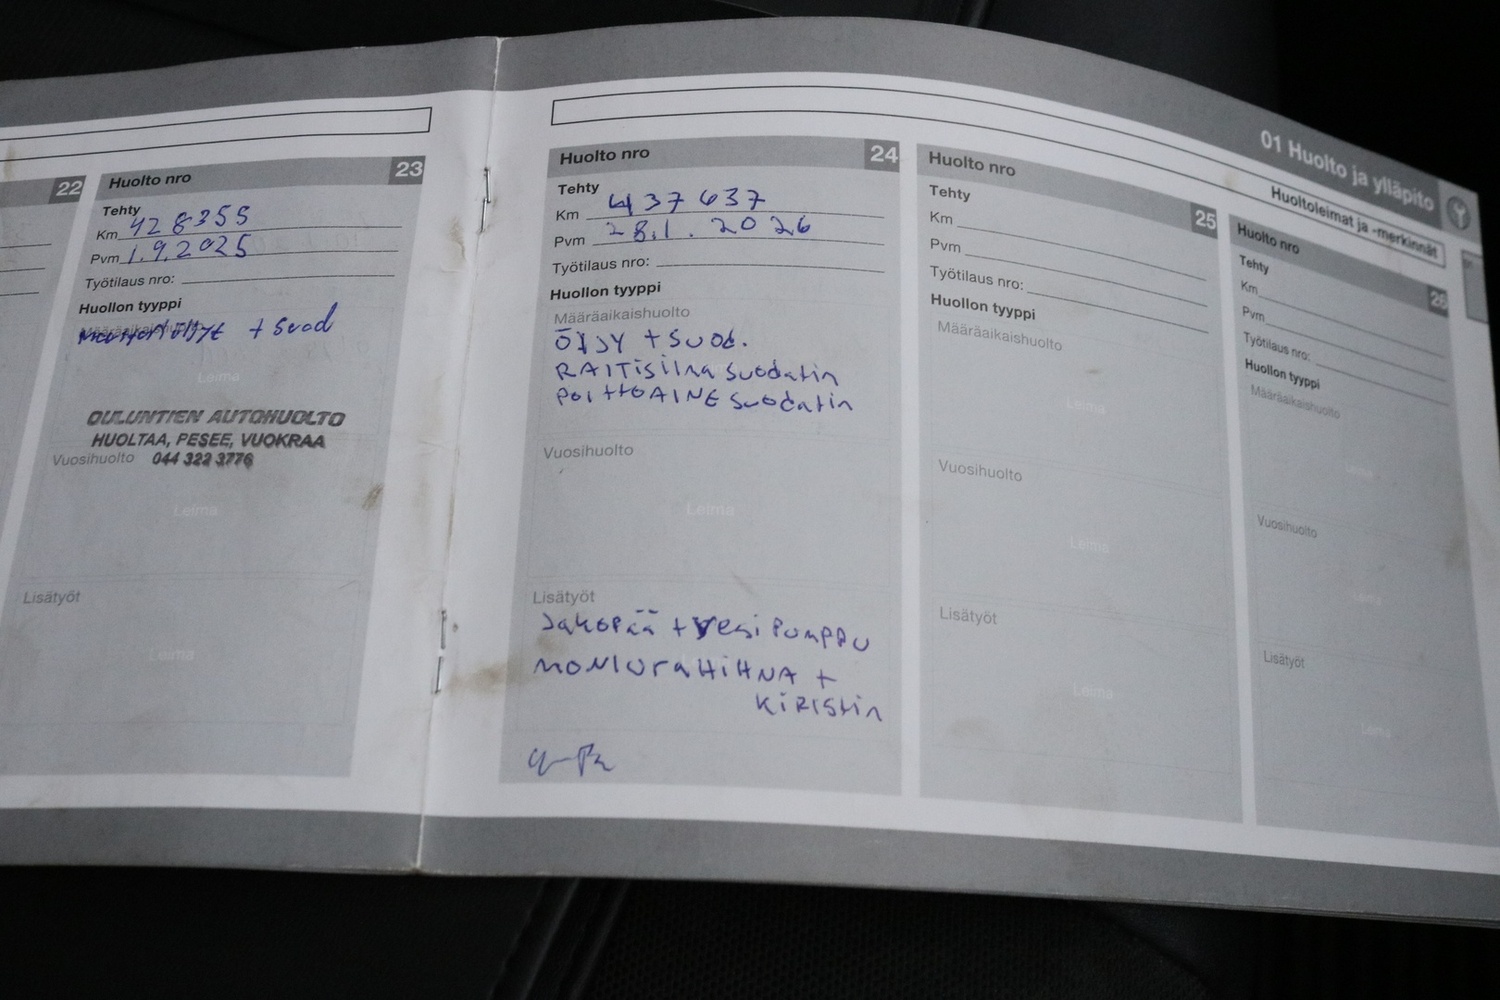 01 Huolto ja ylläpito
Huoltoleimat ja -merkinnät
22
Huolto nro 23
Tehty
Km 428355
Pvm 1.9.2025
Työtilaus nro:
Huollon tyyppi
Määräaikaishuolto
moottoriöljyt + suod
Leima
OULUNTIEN AUTOHUOLTO
HUOLTAA, PESEE, VUOKRAA
044 322 3776
Vuosihuolto
Leima
Lisätyöt
Leima
Huolto nro 24
Tehty
Km 437637
Pvm 28.1.2026
Työtilaus nro:
Huollon tyyppi
Määräaikaishuolto
ÖljY + suod.
RAITisilma suodatin
POlttOAINE suodatin
Vuosihuolto
Leima
Lisätyöt
Jakopää + vesipumppu
MONIuraHiHNA +
KiRIStin
Huolto nro 25
Tehty
Km
Pvm
Työtilaus nro:
Huollon tyyppi
Määräaikaishuolto
Leima
Vuosihuolto
Leima
Lisätyöt
Leima
Huolto nro 26
Tehty
Km
Pvm
Työtilaus nro:
Huollon tyyppi
Määräaikaishuolto
Leima
Vuosihuolto
Leima
Lisätyöt
Leima